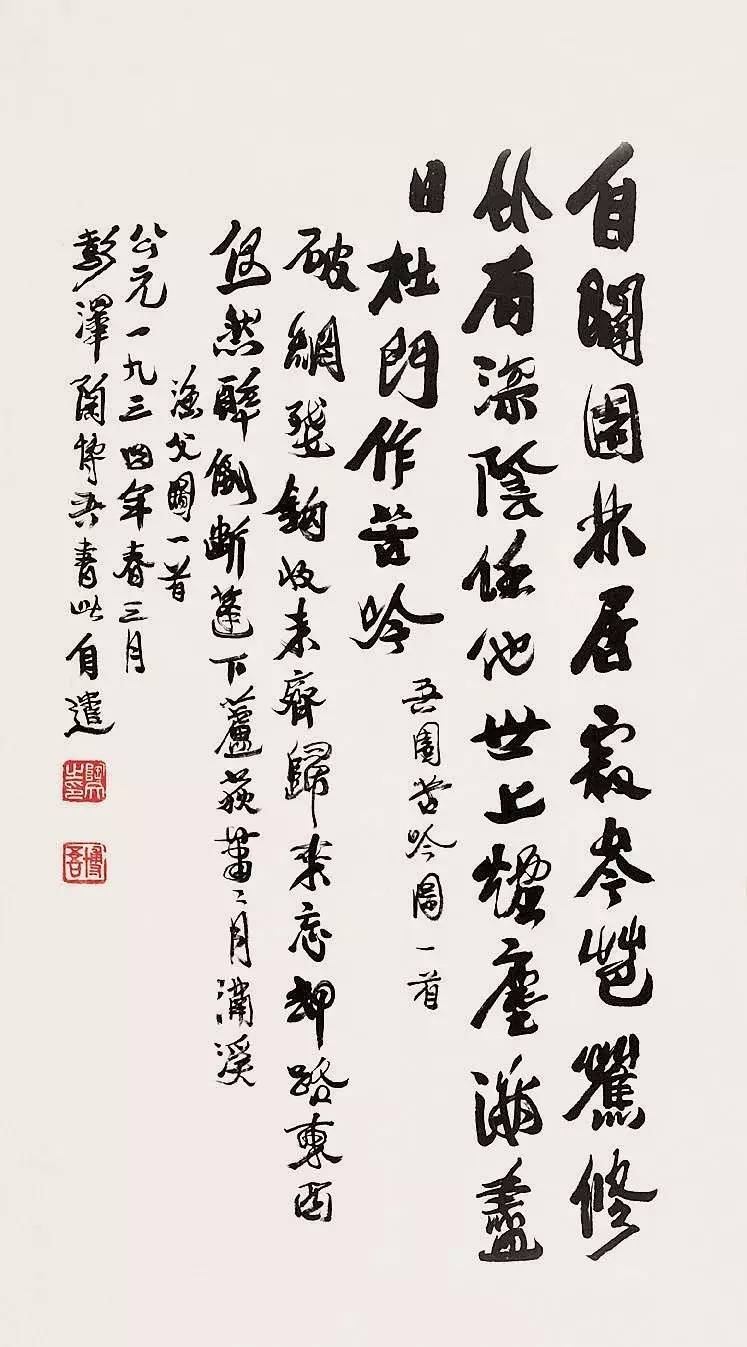 自闢園林居寂岑芭蕉修
竹有深陰任他世上煙塵滿盡
日杜門作苦吟
吾園苦吟圖一首
破網殘鈎收未齊歸來忘卻路東西
然醉倒斷蓬下蘆荻蕭〻月滿溪
漁父圖一首
公元一九三四年春三月
彭澤陶博吾書此自遣
博吾